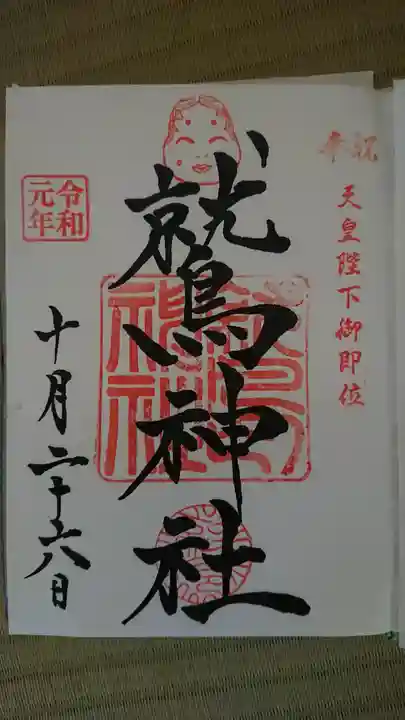 奉祝
天皇陛下御即位
鷲神社
令和
元年
十月二十六日